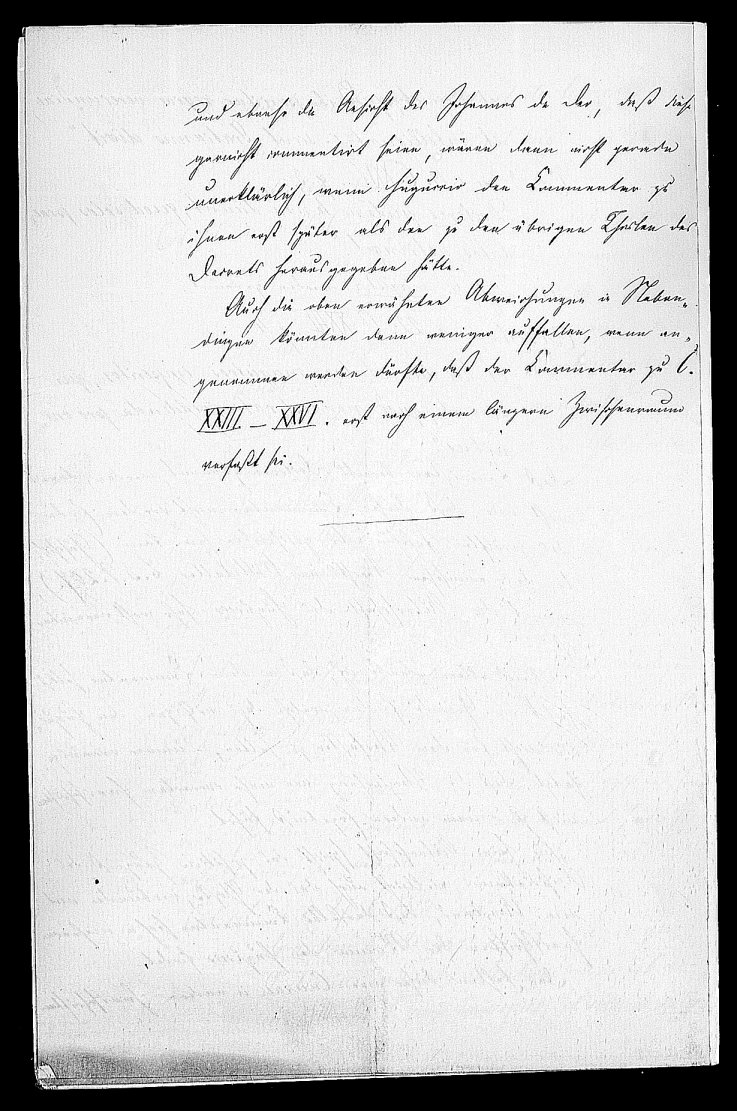 und ebenso die Ansicht des Johannes de Deo, daß diese
garnicht commentirt seien, wären dann nicht gerade
unerklärlich, wenn Huguccio den Commentar zu
ihnen erst später als den zu den übrigen Theilen des
Decrets herausgegeben hätte.
Auch die oben erwähnten Abweichungen in Neben-
dingen könnten dann weniger auffallen, wenn an-
genommen werden dürfte, daß der Commentar zu C.
XXIII – XXVI. erst nach einem längern Zwischenraum
verfaßt sei.